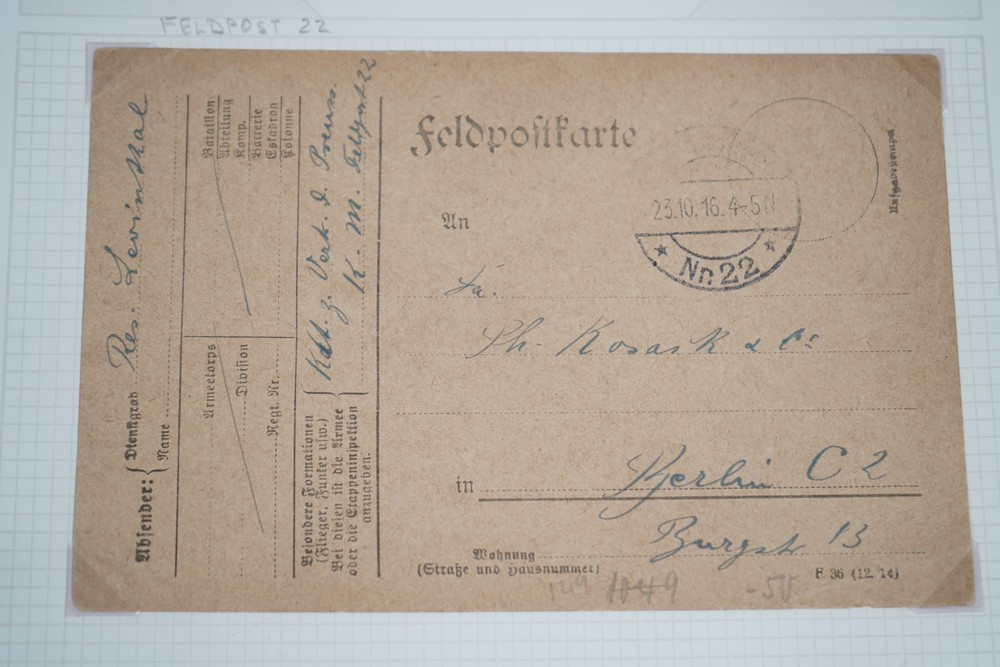 FELDPOST 22
Absender:
Dienstgrad
Name
Res. Levinthal
Bataillon
Abteilung
Komp.
Batterie
Eskadron
Kolonne
Armeekorps
Division
Regt. Nr.
Besondere Formationen
(Flieger, Funker usw.)
Bei diesen ist die Armee
oder die Etappeninspektion
anzugeben.
z. Verf. d. Preuss.
K. M. 22
Feldpostkarte
23.10.16.4-5N
Nr. 22
An
Fa.
Ph. Kosack & Co
in Berlin C 2
Burgstr 13
Wohnung
(Straße und Hausnummer)
F 36 (12. 14)
149 1049 -50